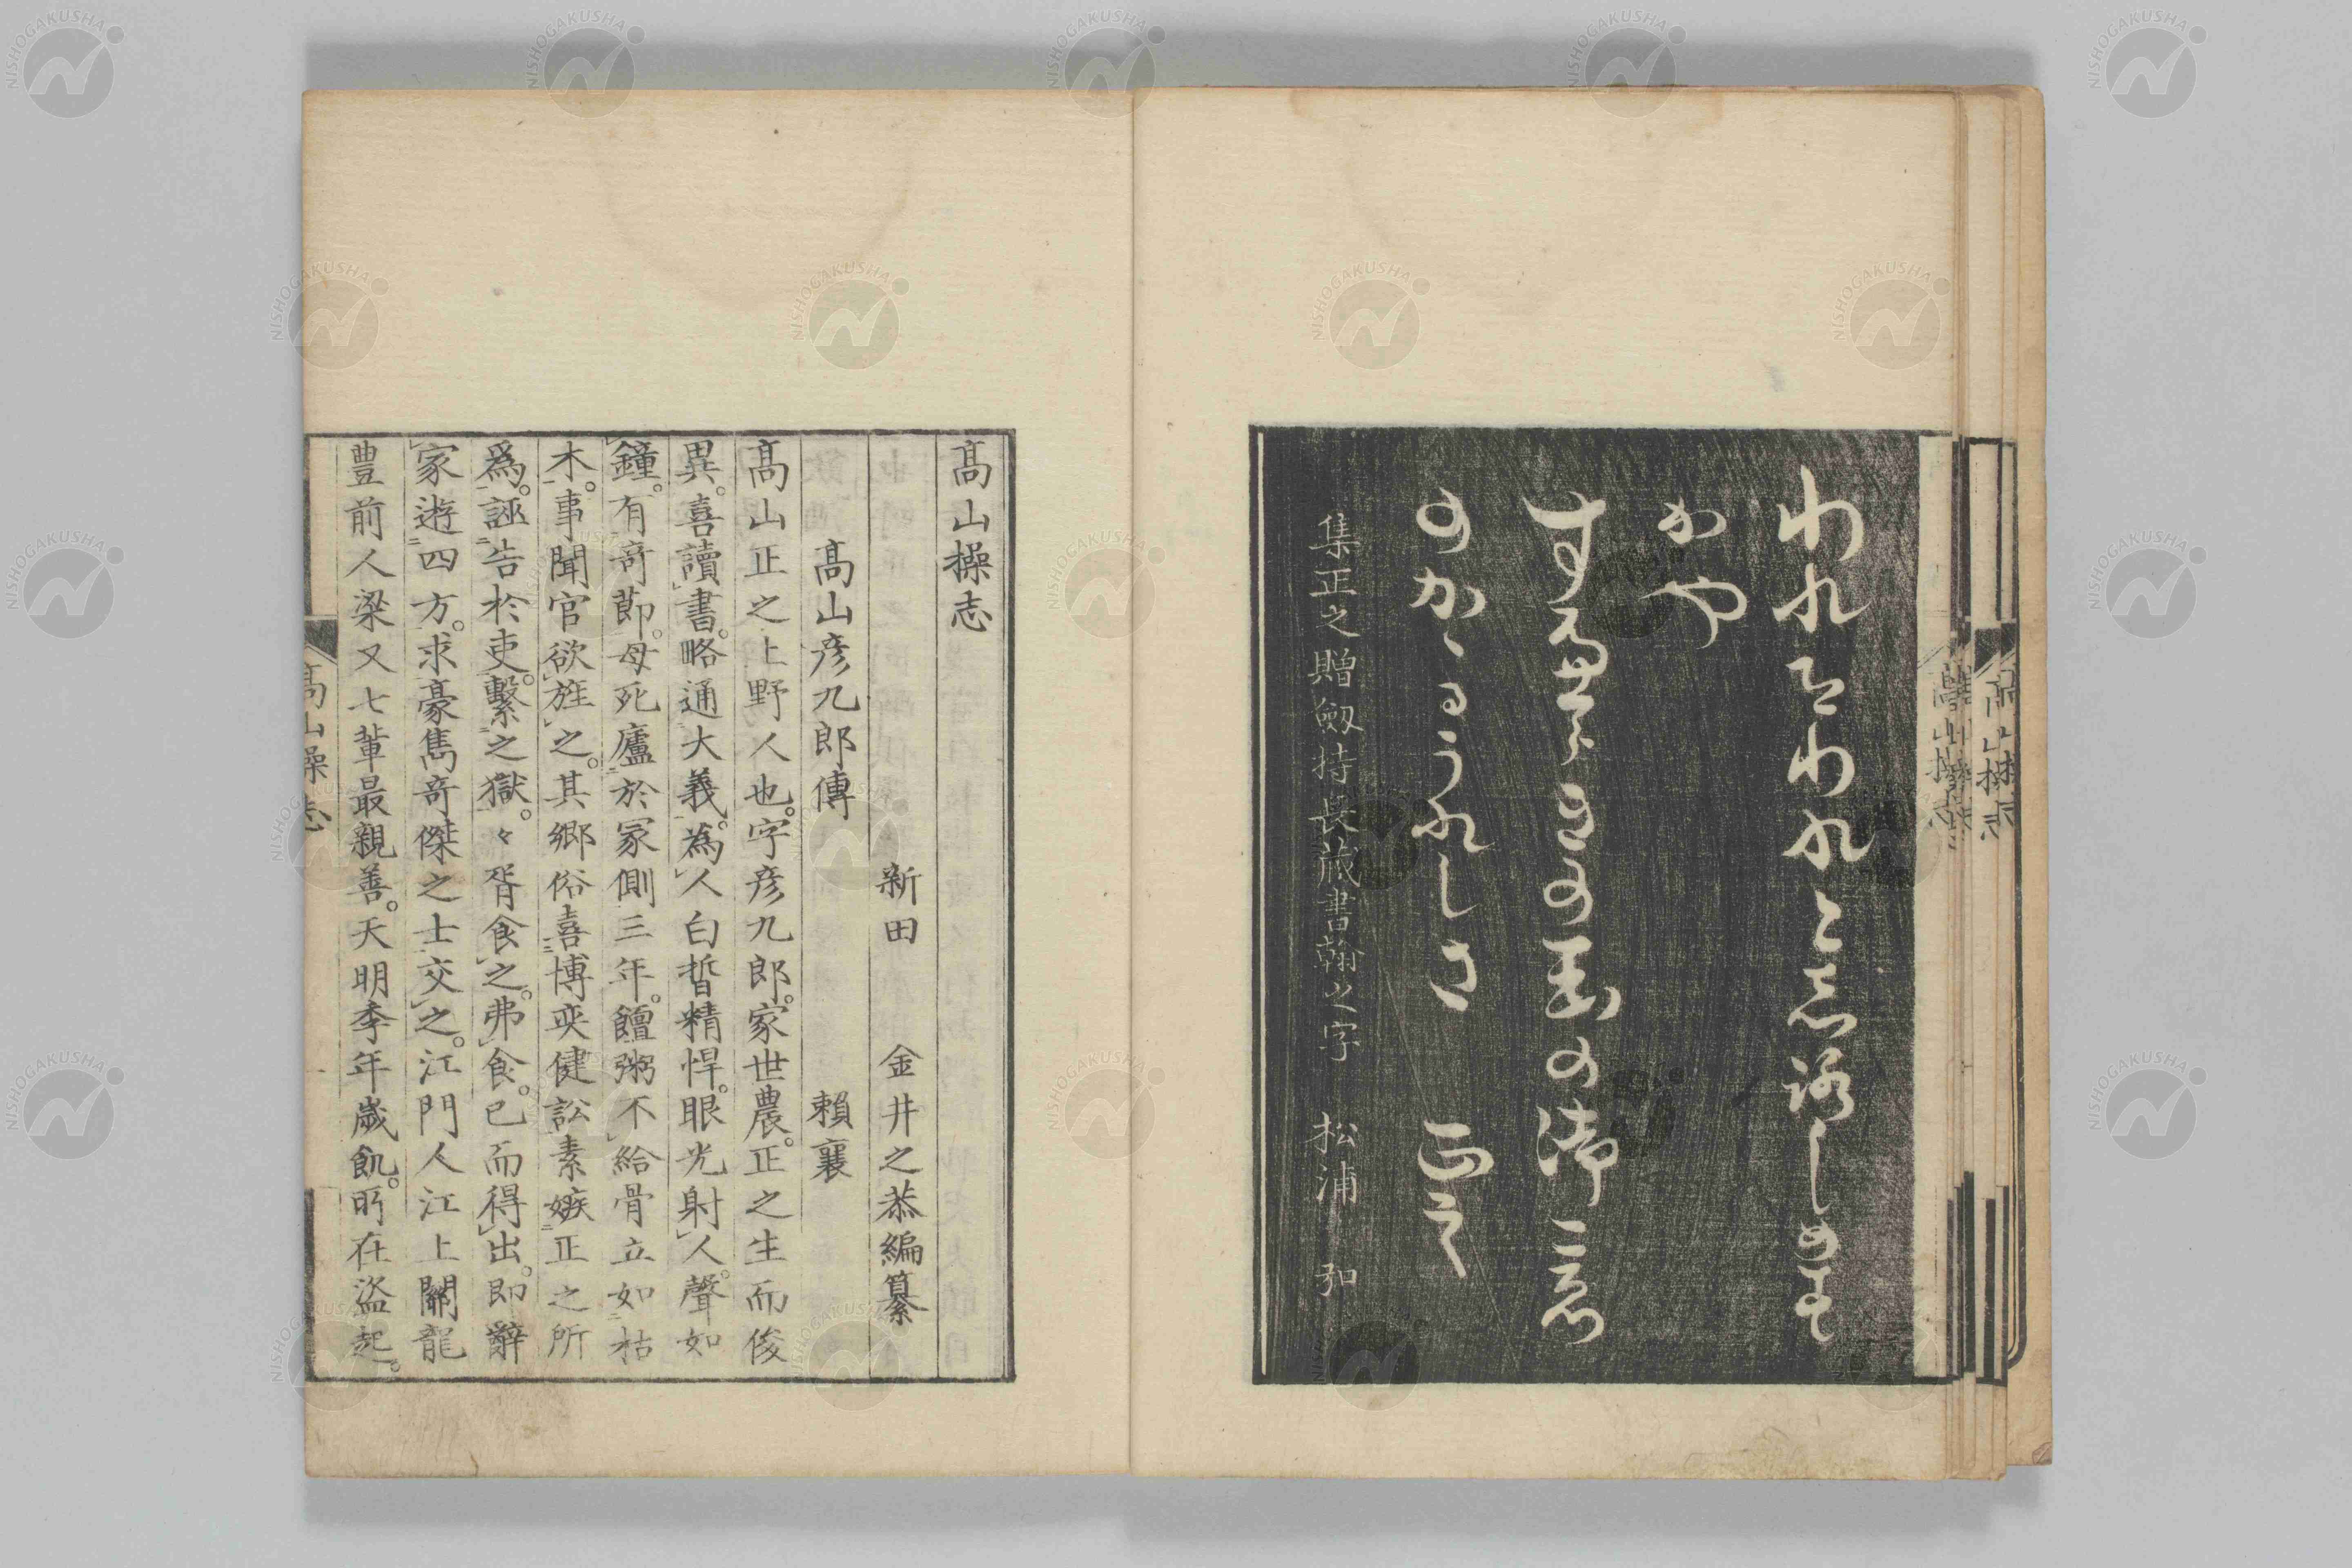 われをわれと志ろしめす
かや
すめらきの玉の御こゑ
のかゝるうれしさ 正之
集正之贈劔持長蔵書翰之字 松浦弘
高山操志
新田 金井之恭編纂
高山彦九郎傳 賴襄
高山正之上野人也。字彦九郎。家世農。正之生而俊
異。喜讀書。略通大義。為人白皙精悍。眼光射人。聲如
鐘。有奇節。母死廬於冢側三年。饘粥不給骨立如枯
木。事聞官欲旌之。其郷俗喜博奕健訟素嫉正之所
爲。誣告於吏。繫之獄。々胥食之。弗食。已而得出。即辭
家遊四方。求豪雋奇傑之士交之。江門人江上關龍
豊前人梁又七輩最親善。天明季年歲飢。所在盜起。
高山操志
NISHOGAKUSHA